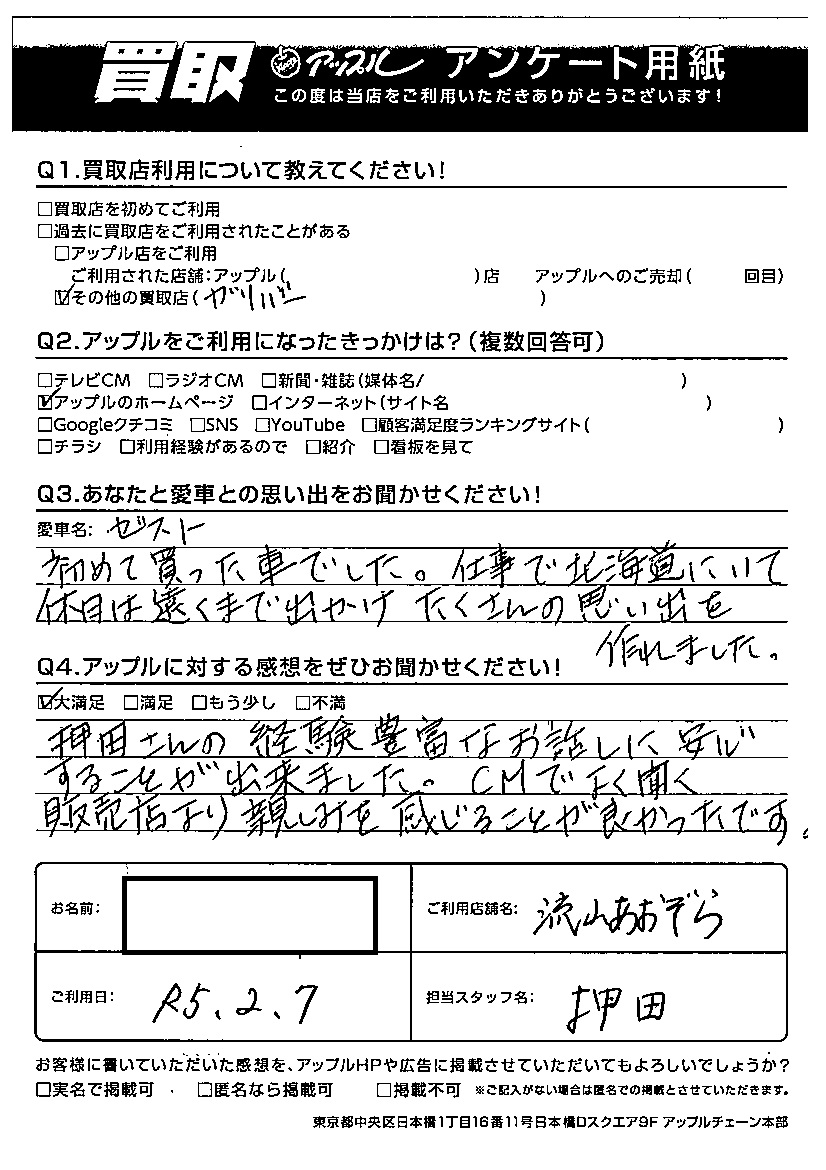 買取 アップル アンケート用紙
この度は当店をご利用いただきありがとうございます!
Q1.買取店利用について教えてください!
□買取店を初めてご利用
□過去に買取店をご利用されたことがある
□アップル店をご利用
ご利用された店舗:アップル( )店 アップルへのご売却( 回目)
☑その他の買取店(ガリバー )
Q2.アップルをご利用になったきっかけは?(複数回答可)
□テレビCM □ラジオCM □新聞・雑誌(媒体名/ )
☑アップルのホームページ □インターネット(サイト名 )
□Googleクチコミ □SNS □YouTube □顧客満足度ランキングサイト( )
□チラシ □利用経験があるので □紹介 □看板を見て
Q3.あなたと愛車との思い出をお聞かせください!
愛車名: ゼスト
初めて買った車でした。仕事で北海道にいて
休日は遠くまで出かけ たくさんの思い出を
作れました。
Q4.アップルに対する感想をぜひお聞かせください!
☑大満足 □満足 □もう少し □不満
押田さんの経験豊富なお話しに安心
することが出来ました。CMでよく聞く
販売店より親しみを感じることが良かったです。
お名前: ご利用店舗名: 流山あおぞら
ご利用日: R5.2.7 担当スタッフ名: 押田
お客様に書いていただいた感想を、アップルHPや広告に掲載させていただいてもよろしいでしょうか?
□実名で掲載可 □匿名なら掲載可 □掲載不可 ※ご記入がない場合は匿名での掲載とさせていただきます。
東京都中央区日本橋1丁目16番11号日本橋Dスクエア9F アップルチェーン本部